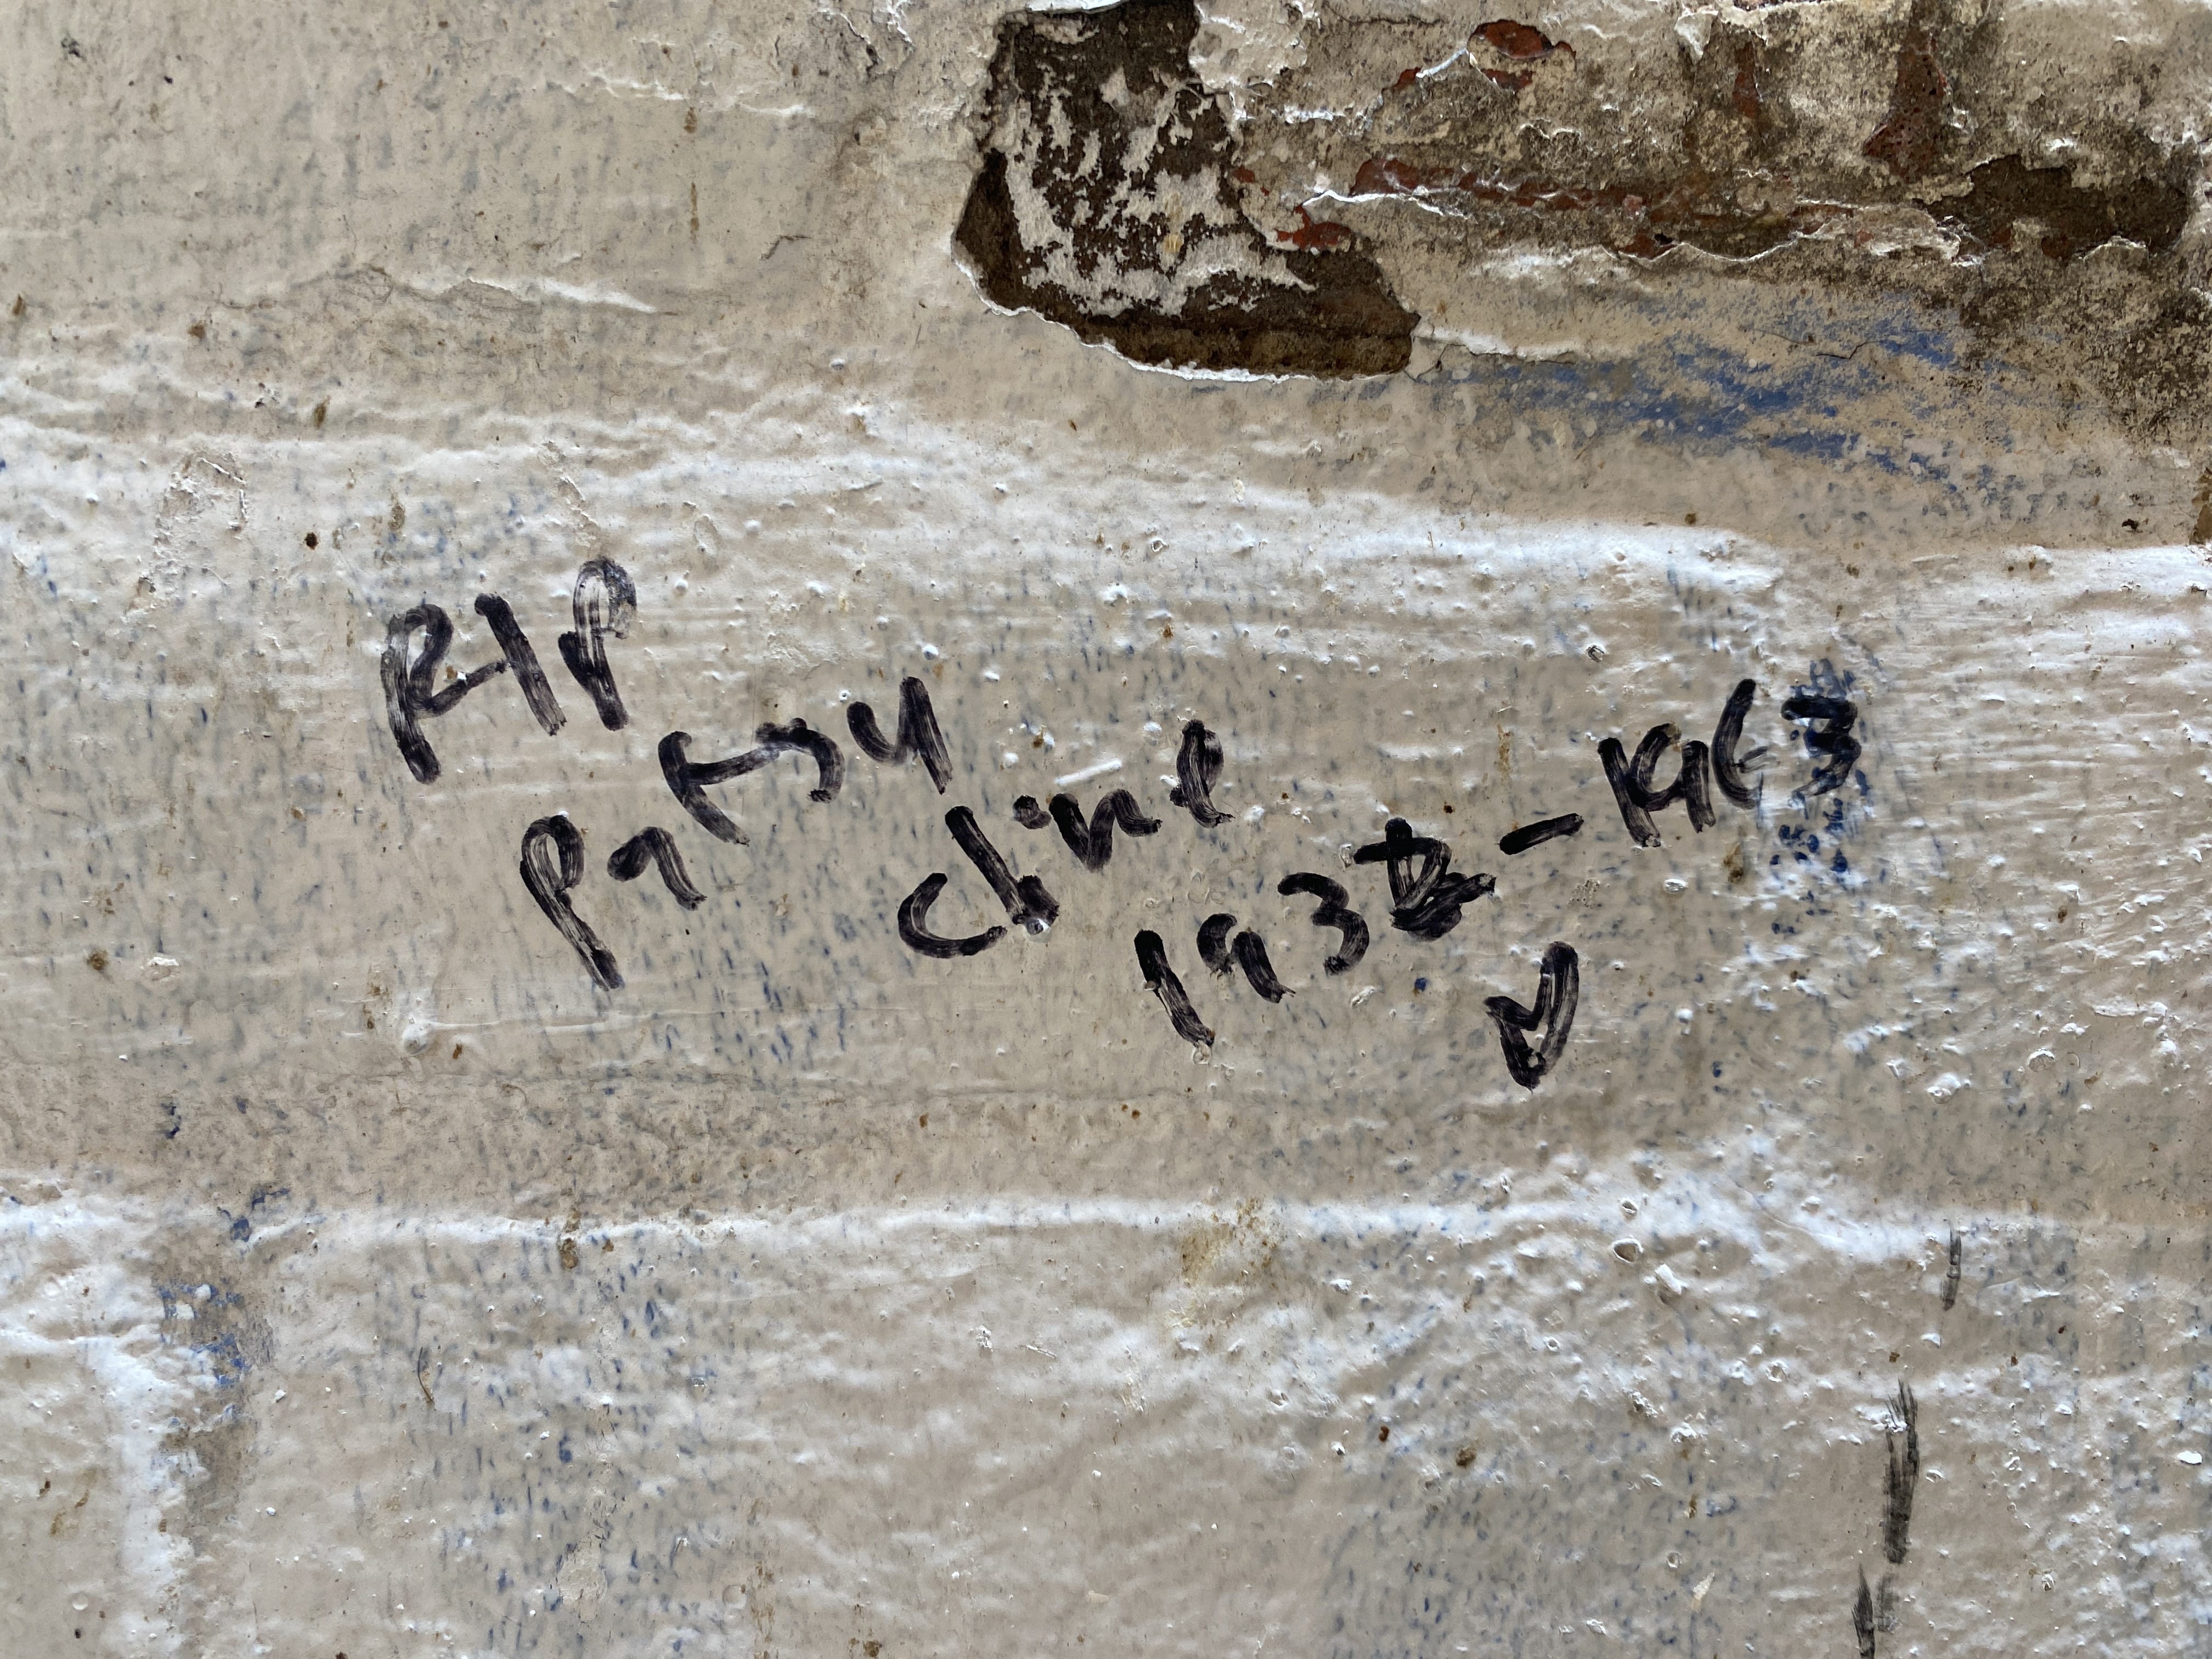 RIP
Patsy
Cline
1932-1963